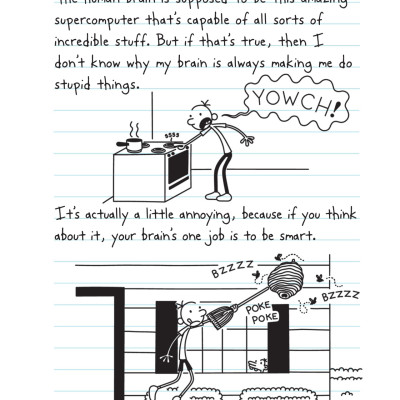 The human brain is supposed to be this amazing
supercomputer that's capable of all sorts of
incredible stuff. But if that's true, then I
don't know why my brain is always making me do
stupid things.
YOWCH!
SSSS
It's actually a little annoying, because if you think
about it, your brain's one job is to be smart.
BZZZZ
BZZZZ
POKE
POKE